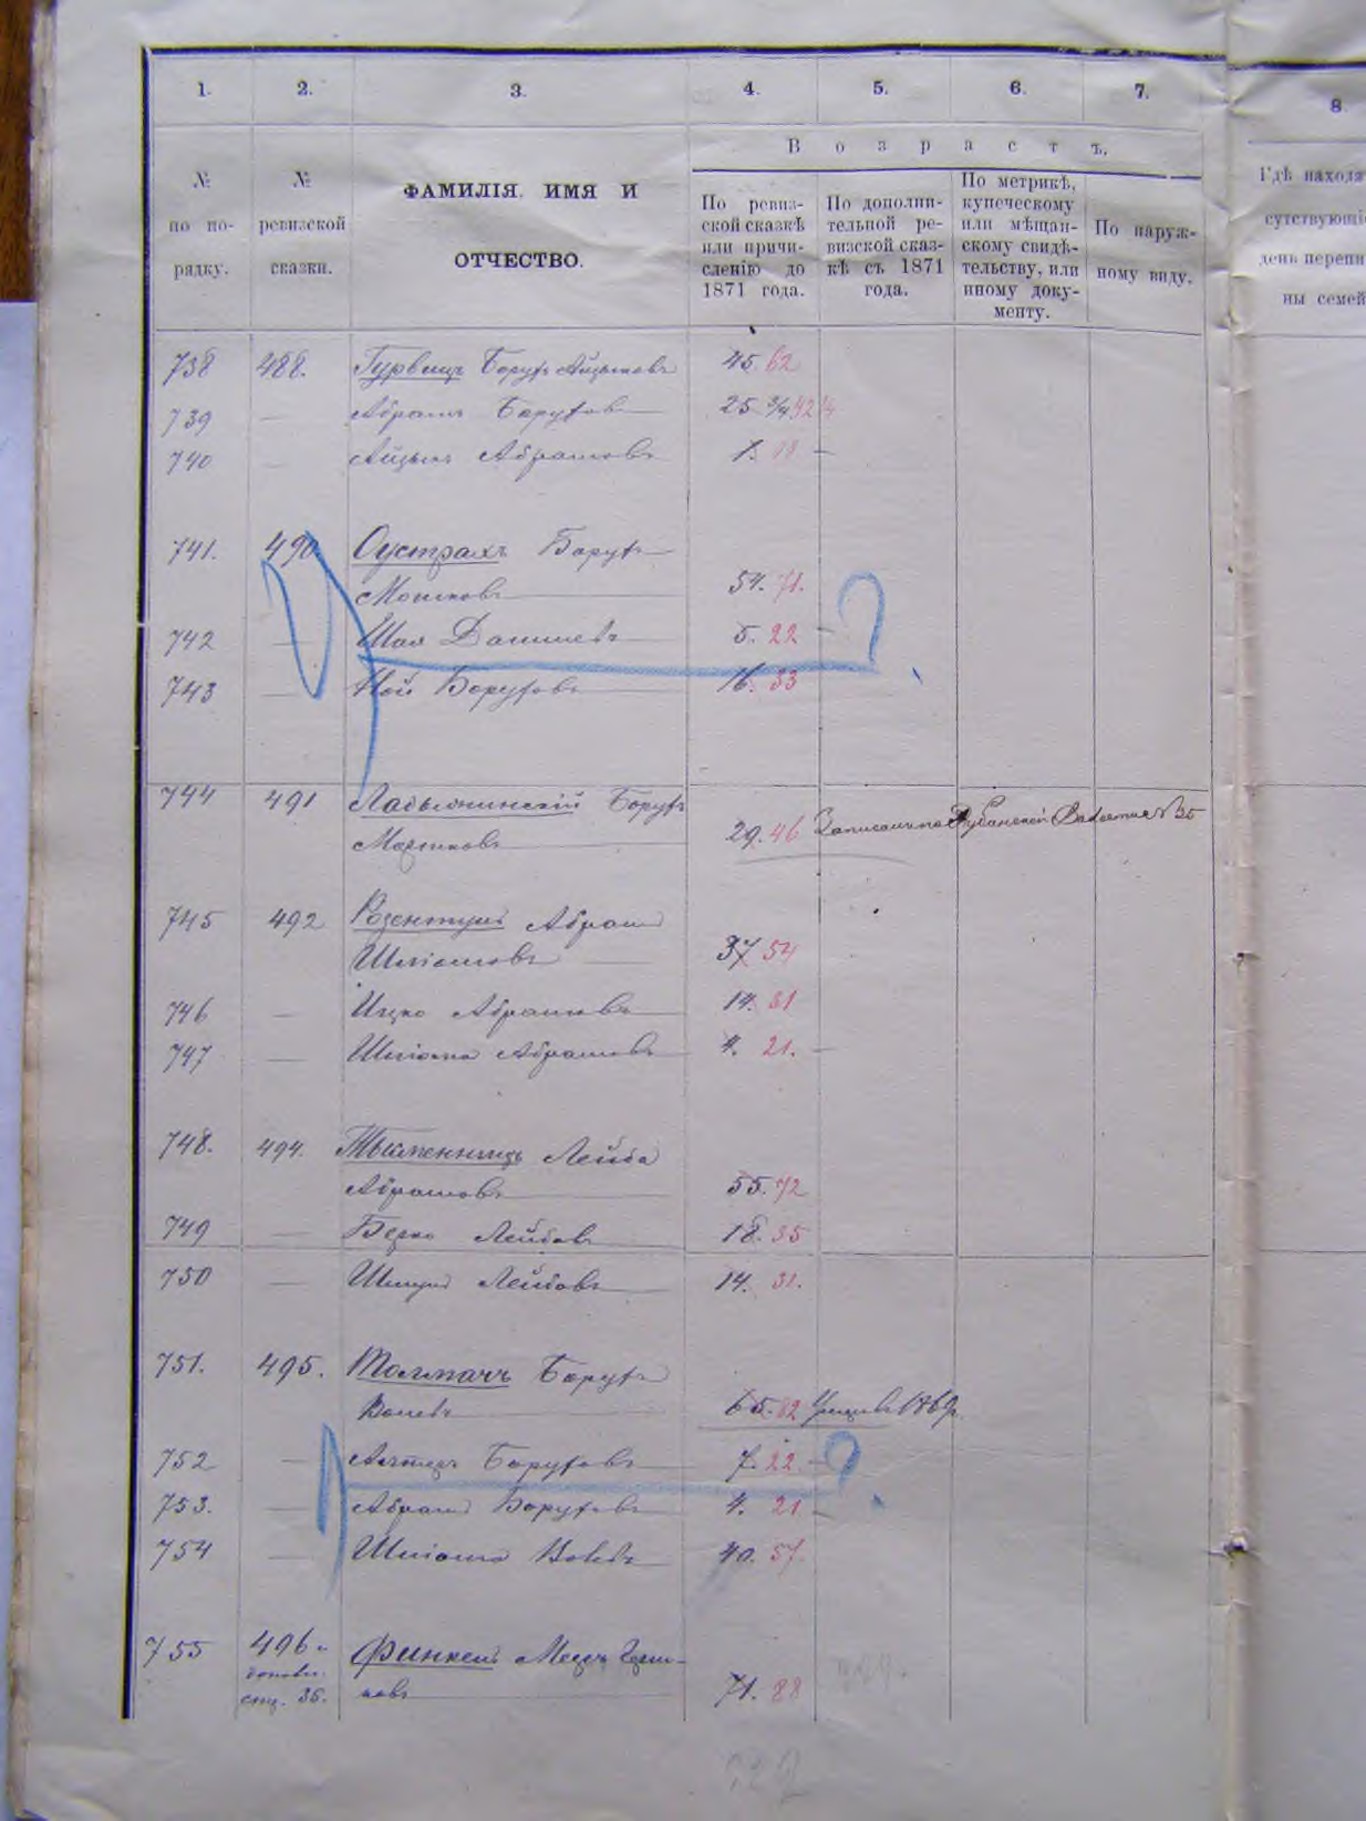 1. 2. 3. 4. 5. 6. 7. 8
В о з р а с т ъ.
№ по по-рядку.
№ ревизской сказки.
ФАМИЛІЯ. ИМЯ И
ОТЧЕСТВО.
По ревиз-
ской сказкѣ
или причи-
сленію до
1871 года.
По дополни-
тельной ре-
визской сказ-
кѣ съ 1871
года.
По метрикѣ,
купеческому
или мѣщан-
скому свидѣ-
тельству, или
иному доку-
менту.
По наруж-
ному виду.
Гдѣ находя
сутствующі
день перепи
ны семей
738 488. Гурвицъ Борухъ Айзиковъ 45. 62
739 — Абрамъ Боруховъ 25 3/4 42 3/4
740 — Айзикъ Абрамовъ 1. 18 —
741. 490 Оустрахъ Борухъ
Мошковъ 54. 71.
742 — Шая Даниневъ 5. 22 —
743 — Ной Боруховъ 16. 33
744 491 Ладыжинскій Борухъ
29. 46 Записанъ по № 35
745 492 Розентулъ Абрамъ
Шліомовъ 37 54
746 — Ицко Абрамовъ 14. 31
747 — Шліома Абрамовъ 4. 21. —
748. 494. Тыменницъ Лейба
Абрамовъ 55. 72
749 — Берко Лейбовъ 18. 35
750 — Шмуль Лейбовъ 14. 31.
751. 495. Толмачъ Борухъ
Вольвъ 65. 82 Умеръ въ 1869.
752 — Алтеръ Боруховъ 7. 22. —
753. — Абрамъ Боруховъ 4. 21 —
754 — Шліома Вольвъ 40. 57.
755 496. Финкель Мееръ
71. 88
стр. 36.